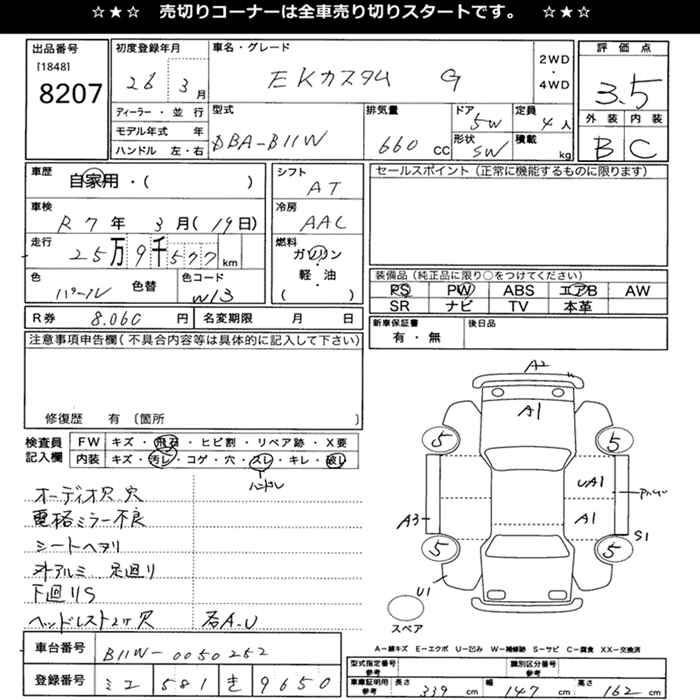 ☆★☆ 売切りコーナーは全車売り切りスタートです。 ☆★☆
出品番号
[1848]
8207
初度登録年月
26 3月
車名・グレード
EKカスタム G
2WD
・
4WD
評価点
3.5
外装 内装
B C
ディーラー・並行
モデル年式 年
ハンドル 左・右
型式
DBA-B11W
排気量
660 CC
ドア
5W
形状
SW
定員
4人
積載
kg
車歴
自家用・( )
車検
R7年 3月(19日)
走行
25万9千577km
色
パール
色替
色コード
W13
シフト
AT
冷房
AAC
燃料
ガソリン
・
軽・油
( )
セールスポイント(正常に機能するものに限ります)
装備品(純正品に限り○をつけてください)
PS PW ABS エアB AW
SR ナビ TV 本革
R券 8.060円
名変期限 月 日
新車保証書
有・無
後日品
注意事項申告欄(不具合内容等は具体的に記入して下さい)
修復歴 有〔箇所 〕
検査員
記入欄
FW キズ・飛石・ヒビ割・リペア跡・X要
内装 キズ・汚レ・コゲ・穴・スレ・キレ・破レ
ハンドル
オーディオ穴 穴
電格ミラー不良
シートヘタリ
オアルミ 足廻り
下廻りS
ヘッドレスト2ケ穴 右A.U
車台番号
B11W-0050252
登録番号
ミエ 581 き 9650
A2
A1
5 5
UA1
A1
A3
S1
5 5
U1
スペア
A-線キズ E-エクボ U-凹み W-補修跡 S-サビ C-腐食 XX-交換済
型式指定番号
参考
識別区分番号
参考
車庫証明用
参考
長さ 339 cm
幅 147 cm
高さ 162 cm